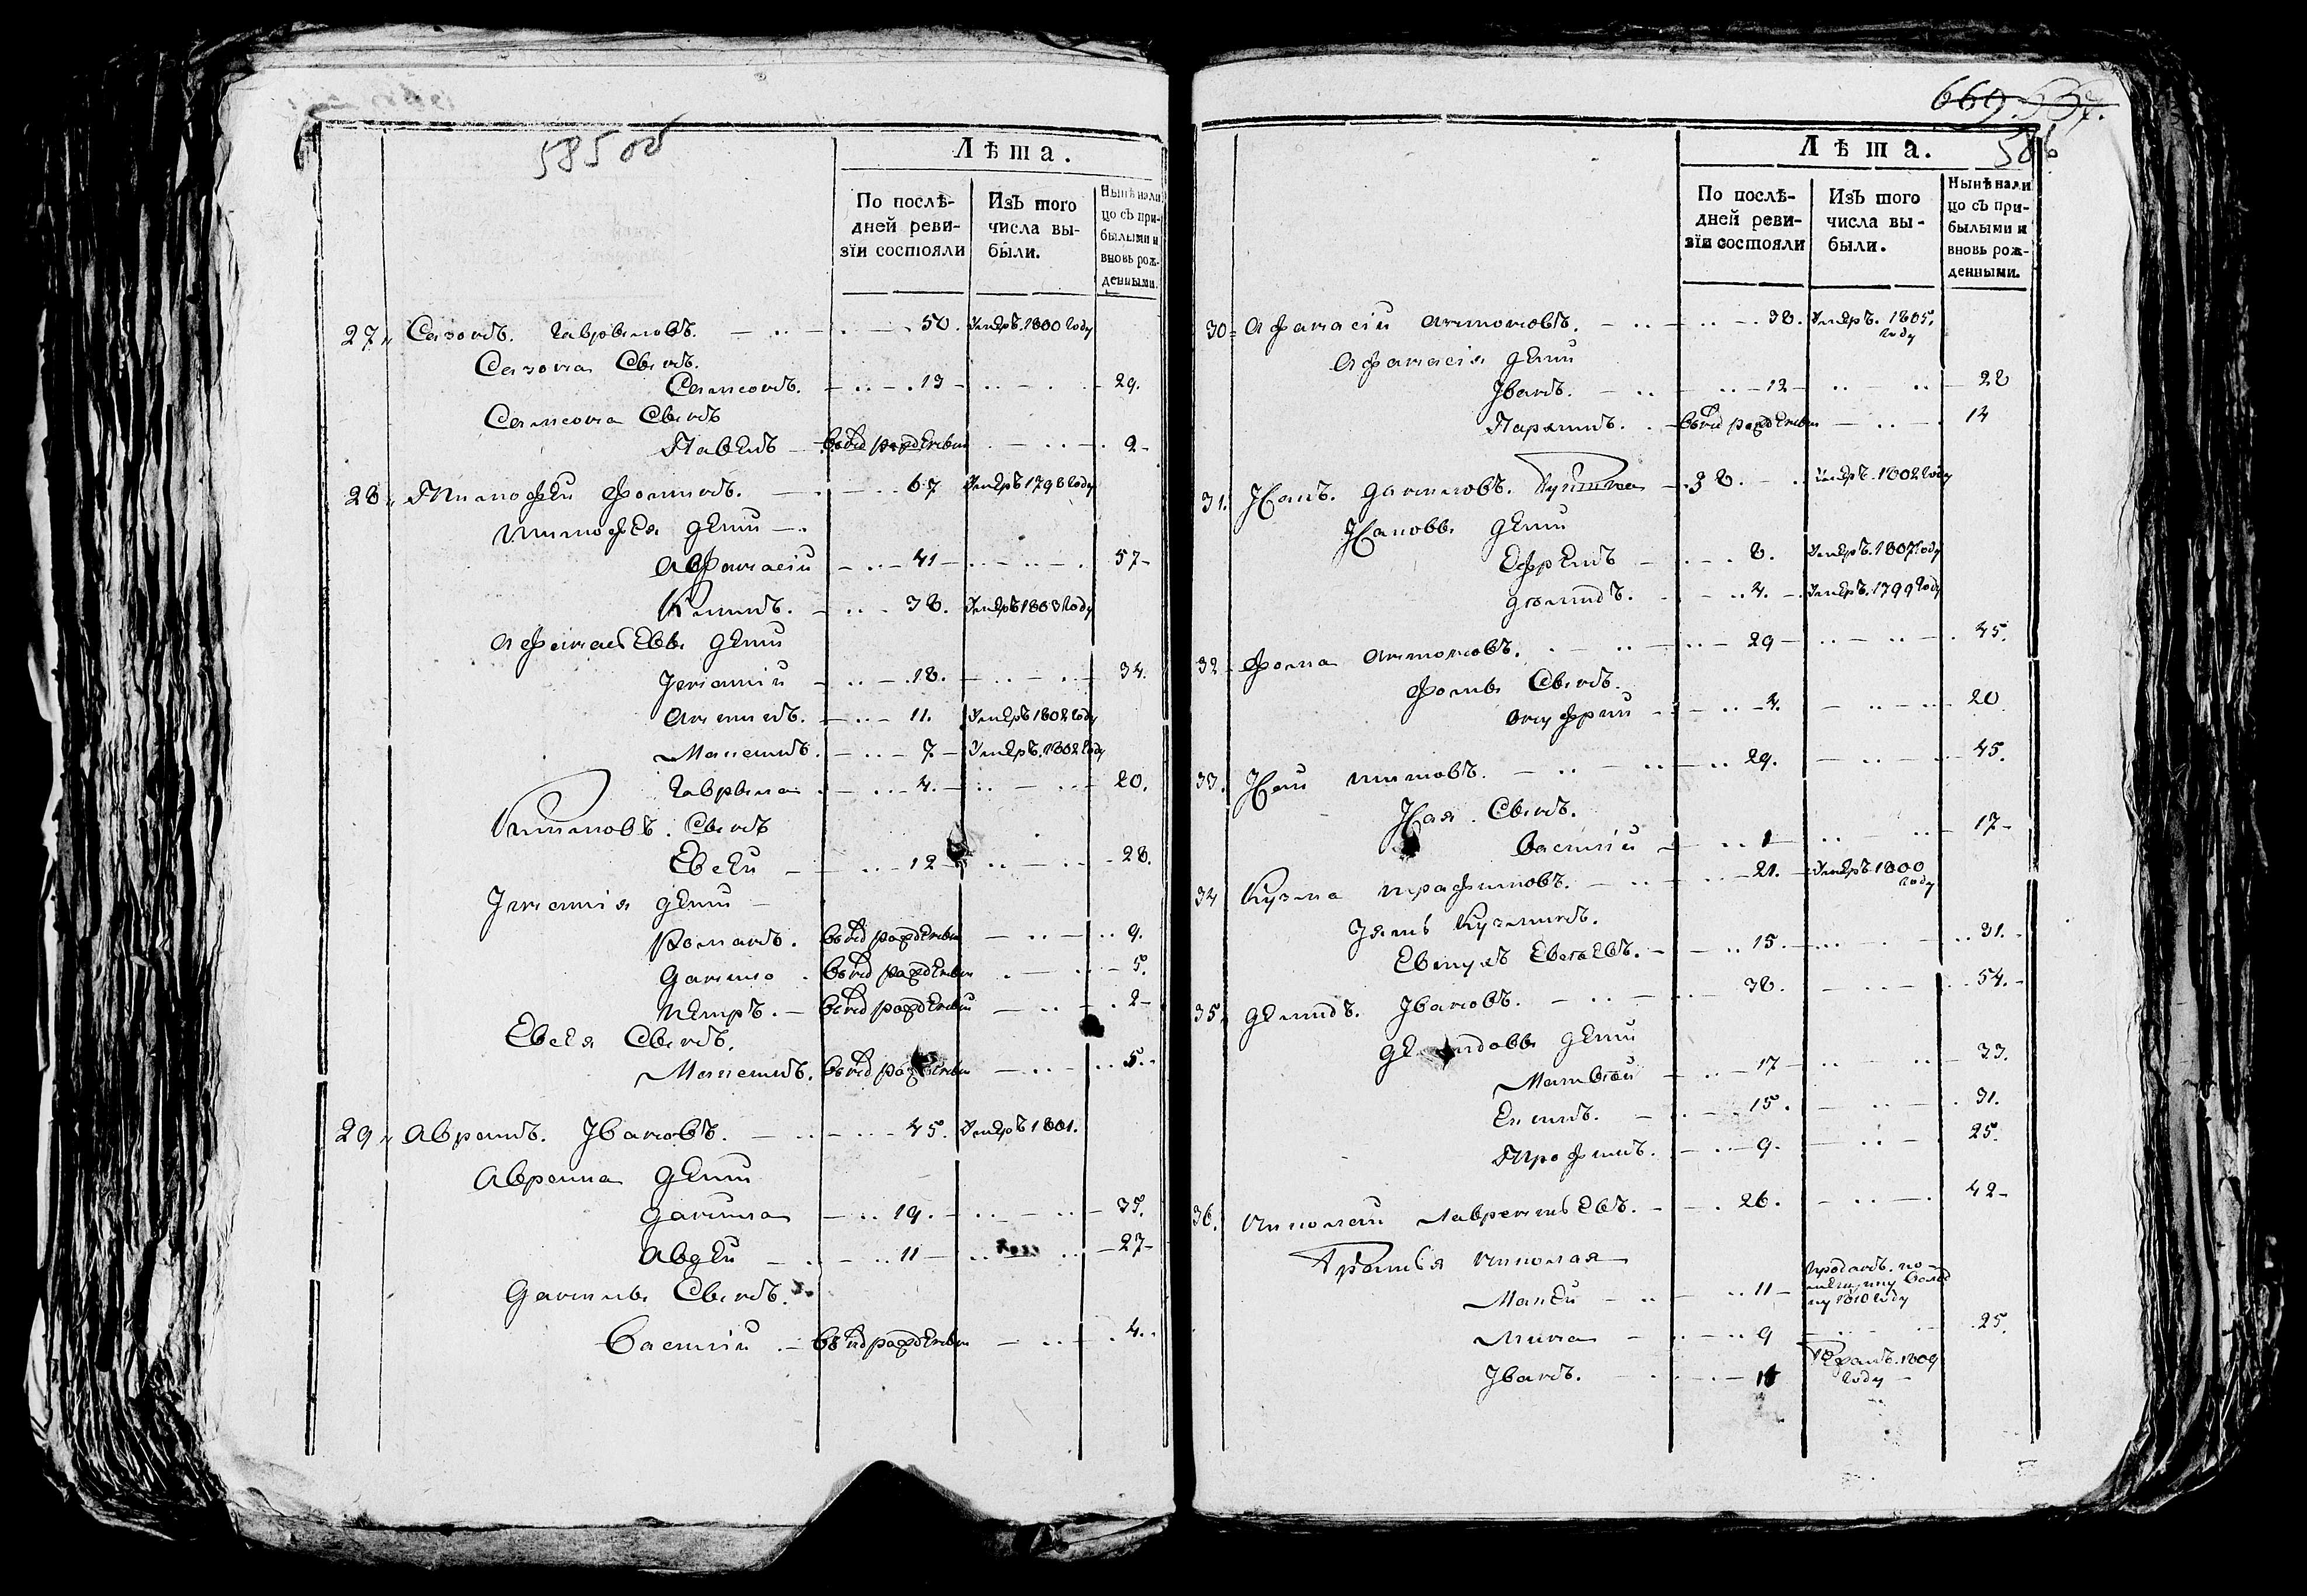 585 об
Лѣта.
По послѣдней ревизіи состояли
Изъ того числа выбыли.
Нынѣ налицо съ прибылыми и вновь рожденными.
27 Сазонъ Гавриловъ. 50. Умеръ 1800 году
Сазона Сынъ.
Самсонъ. 13 29.
Самсона Сынъ
Павелъ вновь рожденны 2
28 Тимофей Фоминъ. 67 Умеръ 1798 году
Тимофея дети
Афонасій 41 57
Климъ. 38. Умеръ 1808 году
Афанасьевы дети
Игнатій 18. 34.
11. Умеръ 1802 году
Максимъ. 7 Умеръ. 1802 году
Гаврила 4. 20.
Климовъ. Сынъ
Евсей 12 28.
Игнатія дети
Романъ. вновь рожденны 9.
Данило вновь рожденны 5.
Петръ. вновь рожденны 2
Евсея Сынъ.
Максимъ. вновь рожденны 5.
29 Аврамъ. Ивановъ. 45. Умеръ 1801.
Аврама дети
Данила 19. 35.
Авдей 11 27
Данилы Сынъ.
Василій вновь рожденны 4.
669 587.
586
Лѣта.
По послѣдней ревизіи состояли
Изъ того числа выбыли.
Нынѣ налицо съ прибылыми и вновь рожденными.
30 Афанасій Антоновъ. 38. Умеръ. 1805. году
Афанасія дети
Иванъ. 12 28
вновь рожденны 14
31. Даниловъ. 38. Умеръ. 1802 году
дети
Ефремъ 8. Умеръ. 1807 году
4. Умеръ. 1799 году
32 Фома Антоновъ. 29 45.
Фомы Сынъ.
Онуфрій 4. 20
33. Титовъ. 29. 45.
Сынъ.
Василій 1 17
34 Кузма Трафимовъ. 21. Умеръ 1800 году
Зять Кузминъ.
Евсеевъ. 15. 31.
35. Демидъ. Ивановъ. 38. 54.
Демидовы дети
Матвѣй 17 33.
15. 31.
Трофимъ. 9. 25.
36. Николай Лаврентьевъ. 26. 42
Братья Николая
Мак​ей 11 Проданъ. помещику 1810 году
9 25.
Иванъ. 1809 году